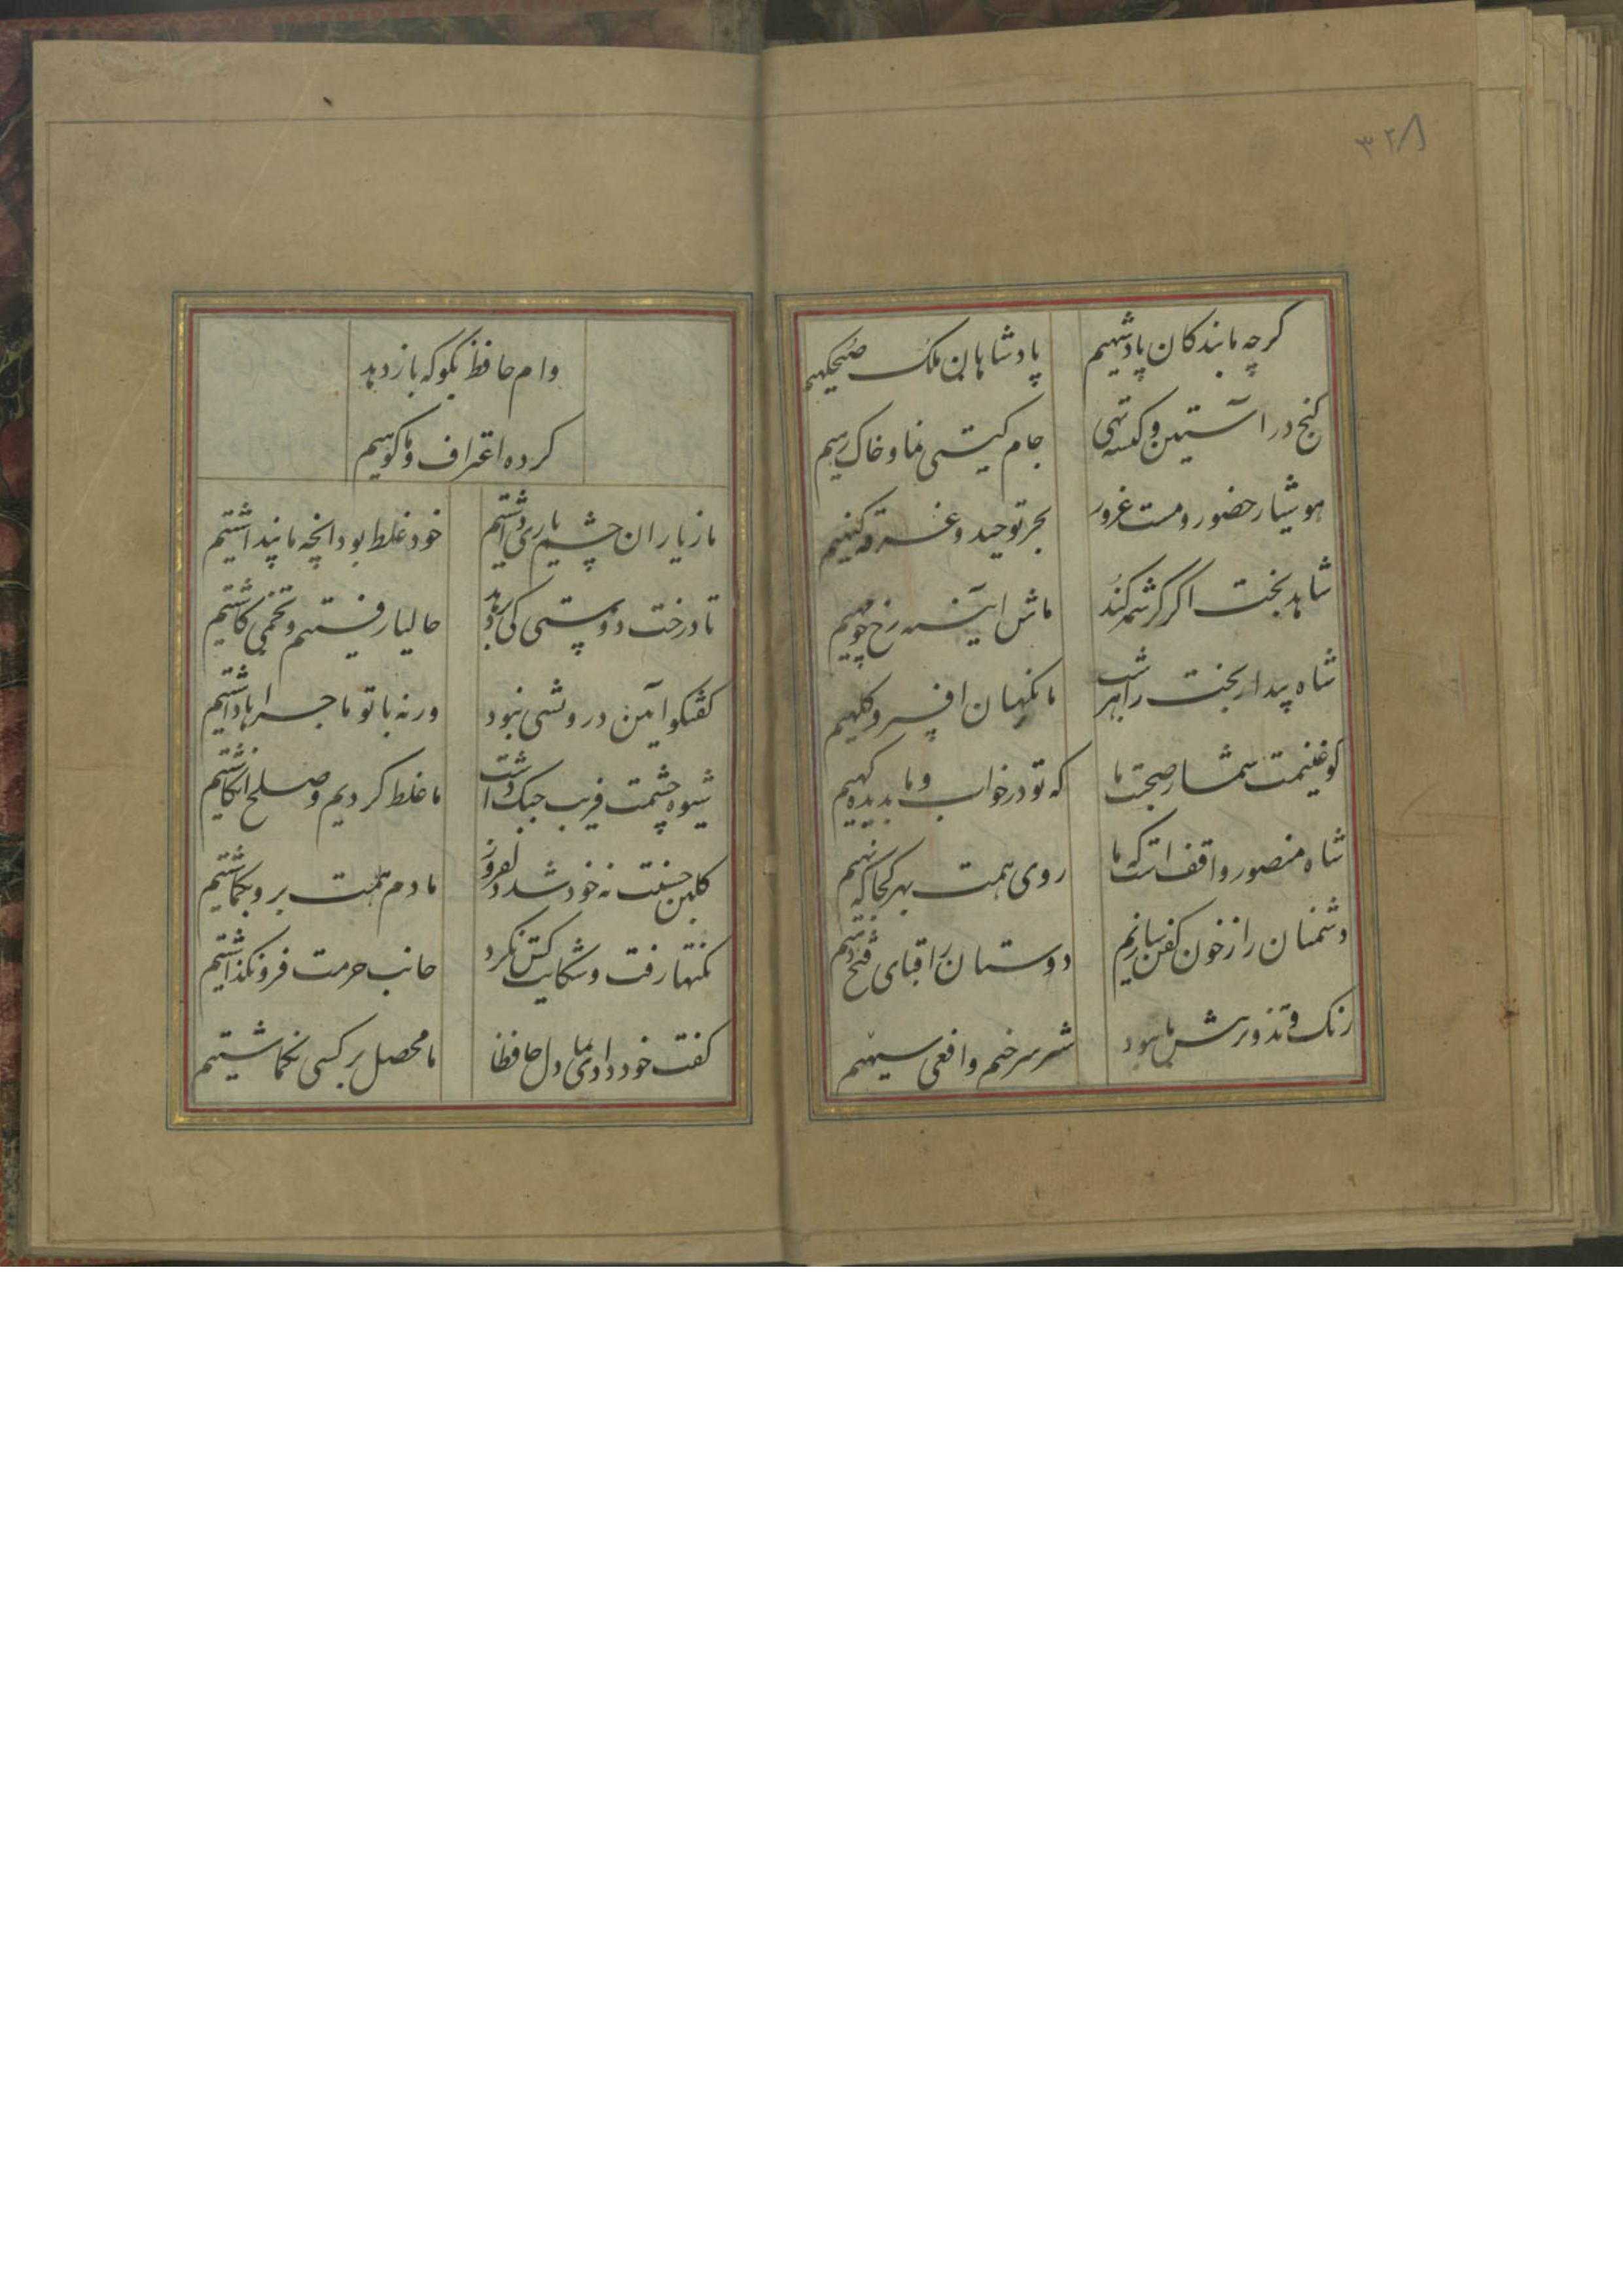 ۳۲۸
کرچه ما بندکان پادشهیم پادشاهان ملک صبحکهیم
کنج در آستین و کیسه تهی جام کیتی نما و خاک رهیم
هوشیار حضور و مست غرور بحر توحید و غرقه کنهیم
شاهد بخت اکر کرشمه کند ماش آیینه رخ چو مهیم
شاه بیدار بخت را هر شب ما نکهبان افسر و کلهیم
کو غنیمت شمار صحبت ما که تو در خواب و ما بدیده کهیم
شاه منصور واقف است که ما روی همت بهر کجا که نهیم
دشمنان را ز خون کفن سازیم دوستان را قبای فتح دهیم
رنک تزویر پیش ما نبود شیر سرخیم و افعی سیهیم
وام حافظ بکو که باز دهد
کرده اعتراف و ما کوهیم
ما ز یاران چشم یاری داشتیم خود غلط بود انچه ما پنداشتیم
تا درخت دوستی کی بر دهد حالیا رفتیم و تخمی کاشتیم
کفتکو آیین درویشی نبود ورنه با تو ماجراها داشتیم
شیوه چشمت فریب جنک داشت ما غلط کردیم و صلح انکاشتیم
کلبن حسنت نه خود شد دلفروز ما دم همت برو بکماشتیم
نکتها رفت و شکایت کس نکرد جانب حرمت فرو نکذاشتیم
کفت خود دادی بما دل حافظا ما محصل بر کسی نکماشتیم